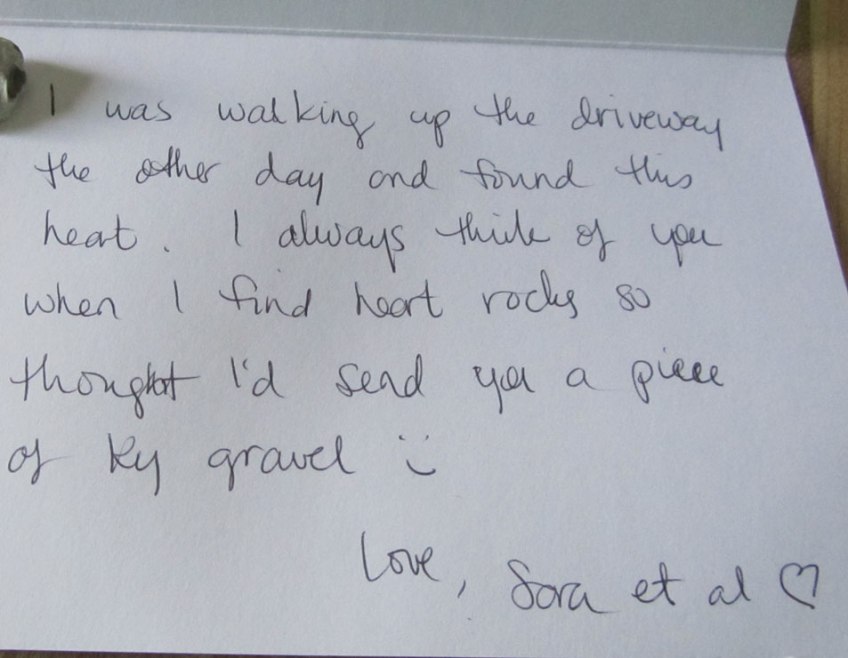 I was walking up the driveway
the other day and found this
heart. I always think of you
when I find heart rocks so
thought I'd send you a piece
of Ky gravel :)
Love, Sara et al ♡